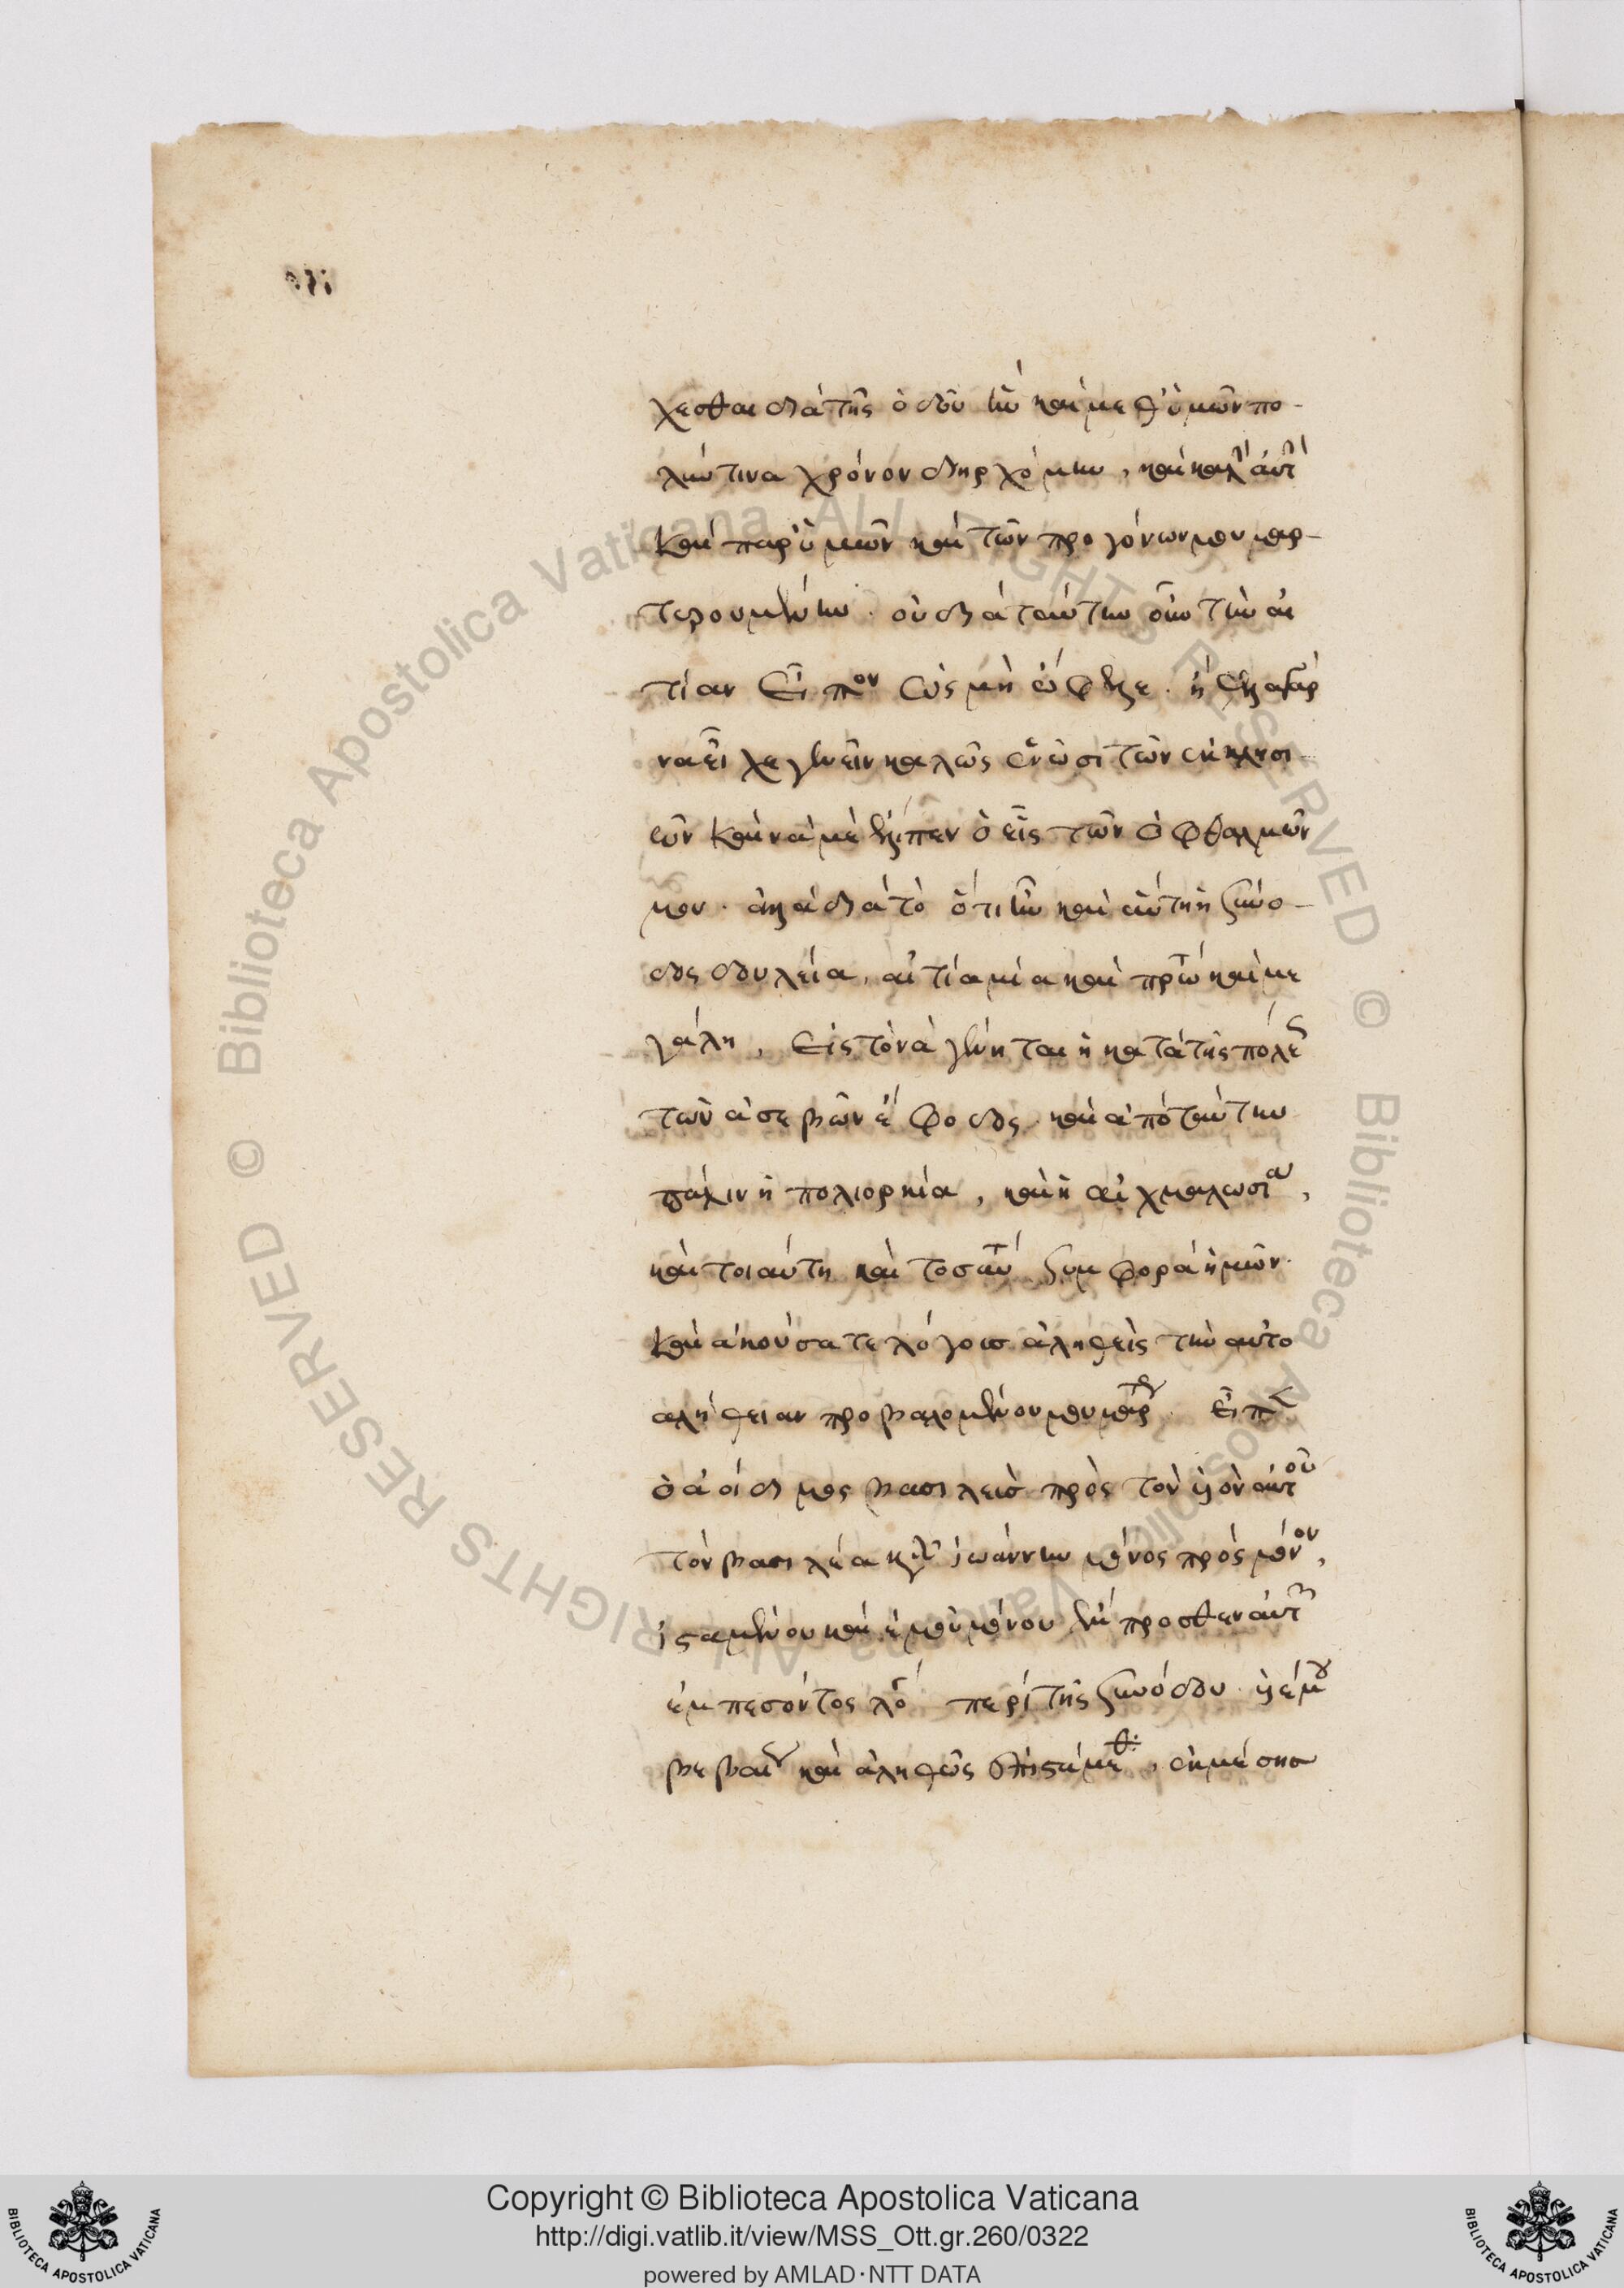 χεσθαι διὰ τῆς ὁδοῦ ἣν καὶ μεθ' ὑμῶν πο-
λύν τινα χρόνον διηρχόμην, καὶ κατ' αὐτ
καὶ παρ' ὑμῶν καὶ τῶν προγόνων μου μαρ-
τυρουμένην. οὐ διὰ ταύτην οὖν τὴν αἰ
τίαν εἶπον ὡς μὴ ὤφελλε. ἢ γὰρ
να εἶχε γενεῖν καλῶς ἕνωσι τῶν ἐκκλησι
ῶν καὶ νὰ μὲ ἔλειπεν ὁ εἷς τῶν ὀφθαλμῶν
μου. ἀλλὰ διὰ τὸ ὅτι ἦν καὶ αὕτη ἡ συνο-
δος δουλεία, αἰτία μία καὶ πρώτη καὶ με
γάλη, εἰς τὸ νὰ γένηται ἡ κατὰ τῆς πόλεως
τῶν ἀσεβῶν ἔφοδος καὶ ἀπὸ ταύτην
πάλιν ἡ πολιορκία, καὶ ἡ αἰχμαλωσία,
καὶ τοιαύτη καὶ τοσαύτη συμφορὰ ἡμῶν.
καὶ ἀκούσατε λόγους ἀληθεῖς τὴν αὐτο
αλήθειαν προβαλομένου μου μάρτυρα. εἶπεν
ὁ ἀοίδιμος βασιλεὺς πρὸς τὸν υἱὸν αὐτοῦ
τὸν βασιλέα κὺρ ἰωάννην μόνος πρὸς μόνον,
ἱσταμένου καὶ ἐμοῦ μόνου ἔμπροσθεν αὐτῶν
ἐμπεσόντος λόγου περὶ τῆς συνόδου. υἱέ μου
βεβαίως καὶ ἀληθῶς ἐπιστάμεθα, ἐκ μέσης
Copyright © Biblioteca Apostolica Vaticana
http://digi.vatlib.it/view/MSS_Ott.gr.260/0322
powered by AMLAD·NTT DATA